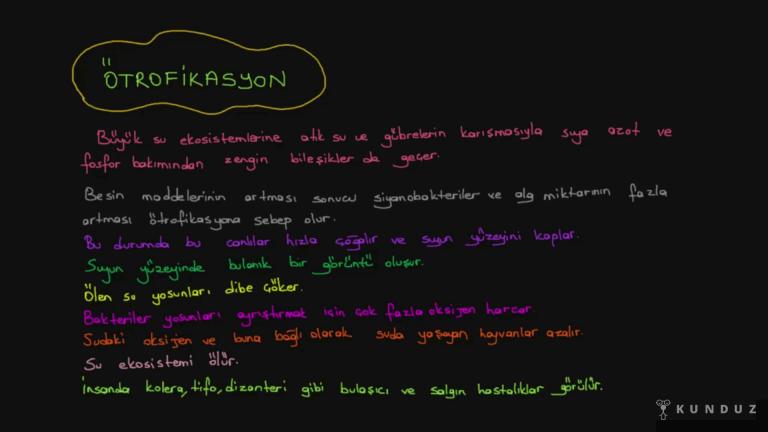 ÖTROFİKASYON
Büyük su ekosistemlerine atık su ve gübrelerin karışmasıyla suya azot ve
fosfor bakımından zengin bileşikler de geçer.
Besin maddelerinin artması sonucu siyanobakteriler ve alg miktarının fazla
artması ötrofikasyona sebep olur.
Bu durumda bu canlılar hızla çoğalır ve suyun yüzeyini kaplar.
Suyun yüzeyinde bulanık bir görüntü oluşur.
Ölen su yosunları dibe çöker.
Bakteriler yosunları ayrıştırmak için çok fazla oksijen harcar.
Sudaki oksijen ve buna bağlı olarak suda yaşayan hayvanlar azalır.
Su ekosistemi ölür.
İnsanda kolera, tifo, dizanteri gibi bulaşıcı ve salgın hastalıklar görülür.
KUNDUZ